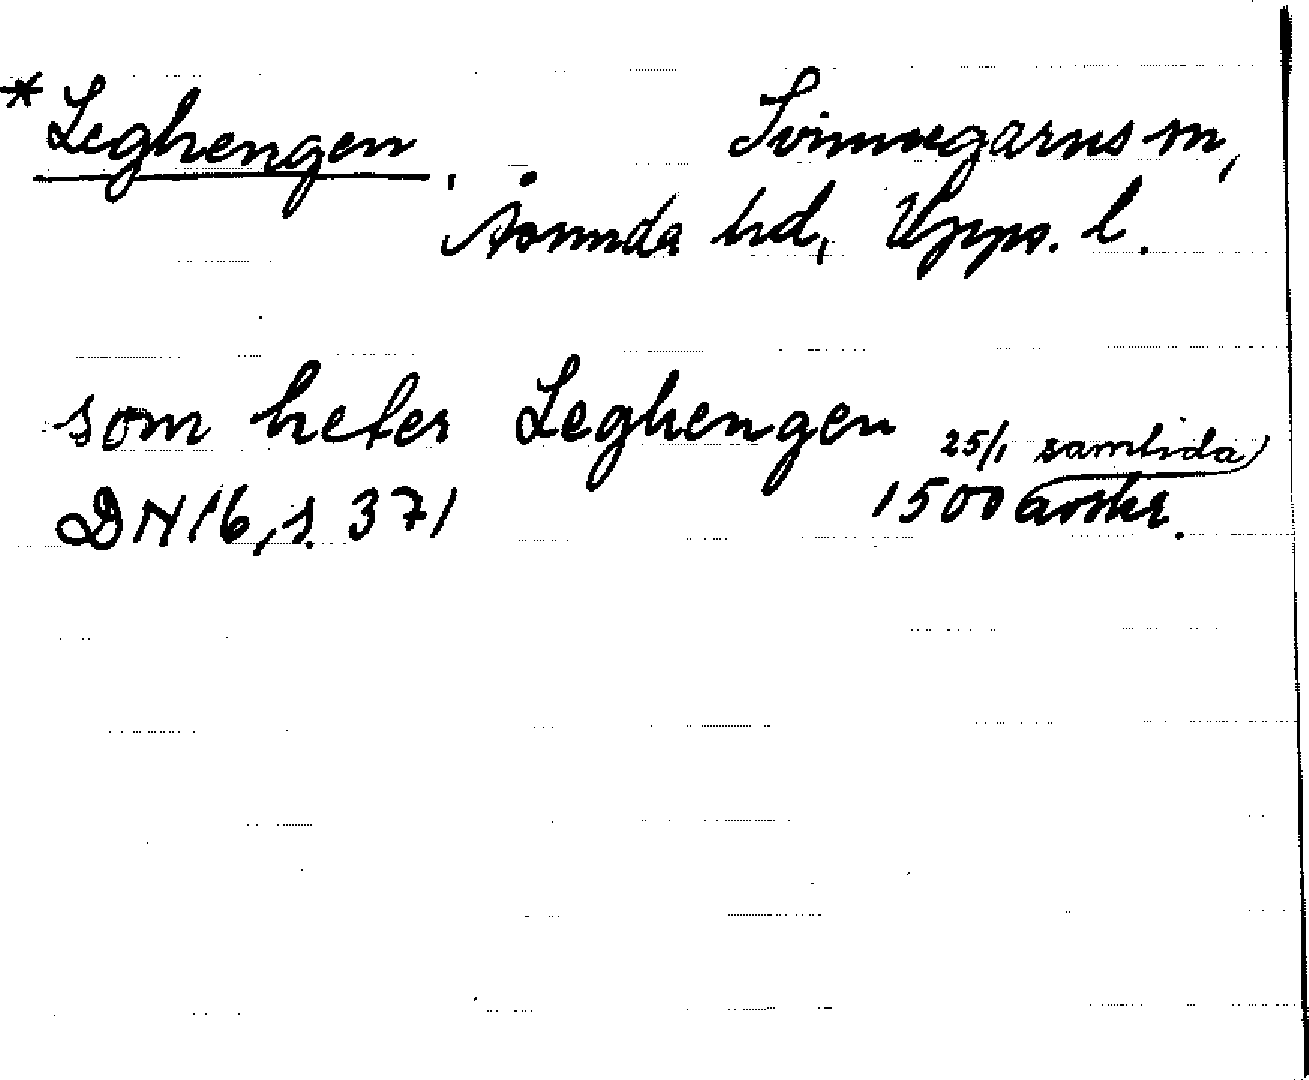 *Leghengen. Svinnegarns sn,
Åsunda hd, Upps. l.
som heter Leghengen 25/1 samtida
DN 16, s. 371 1500 avskr.